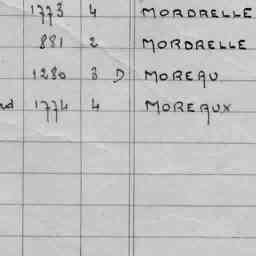 1773 4 MORDRELLE
881 2 MORDRELLE
1280 3 D MOREAU
nd 1774 4 MOREAUX